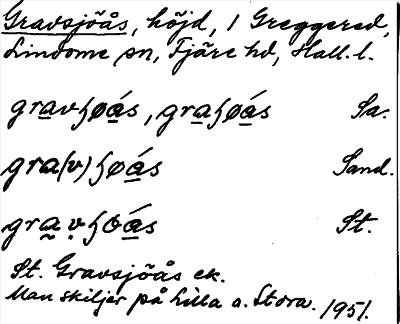 Gravsjöås, höjd, 1 Greggered,
Lindome sn, Fjäre hd, Hall. l.
gravɧøás, graɧøás Sa.
gra(v)ɧøás Sand.
gravɧøás St.
St. Gravsjöås ek.
Man skiljer på Lilla o. Stora. 1951.